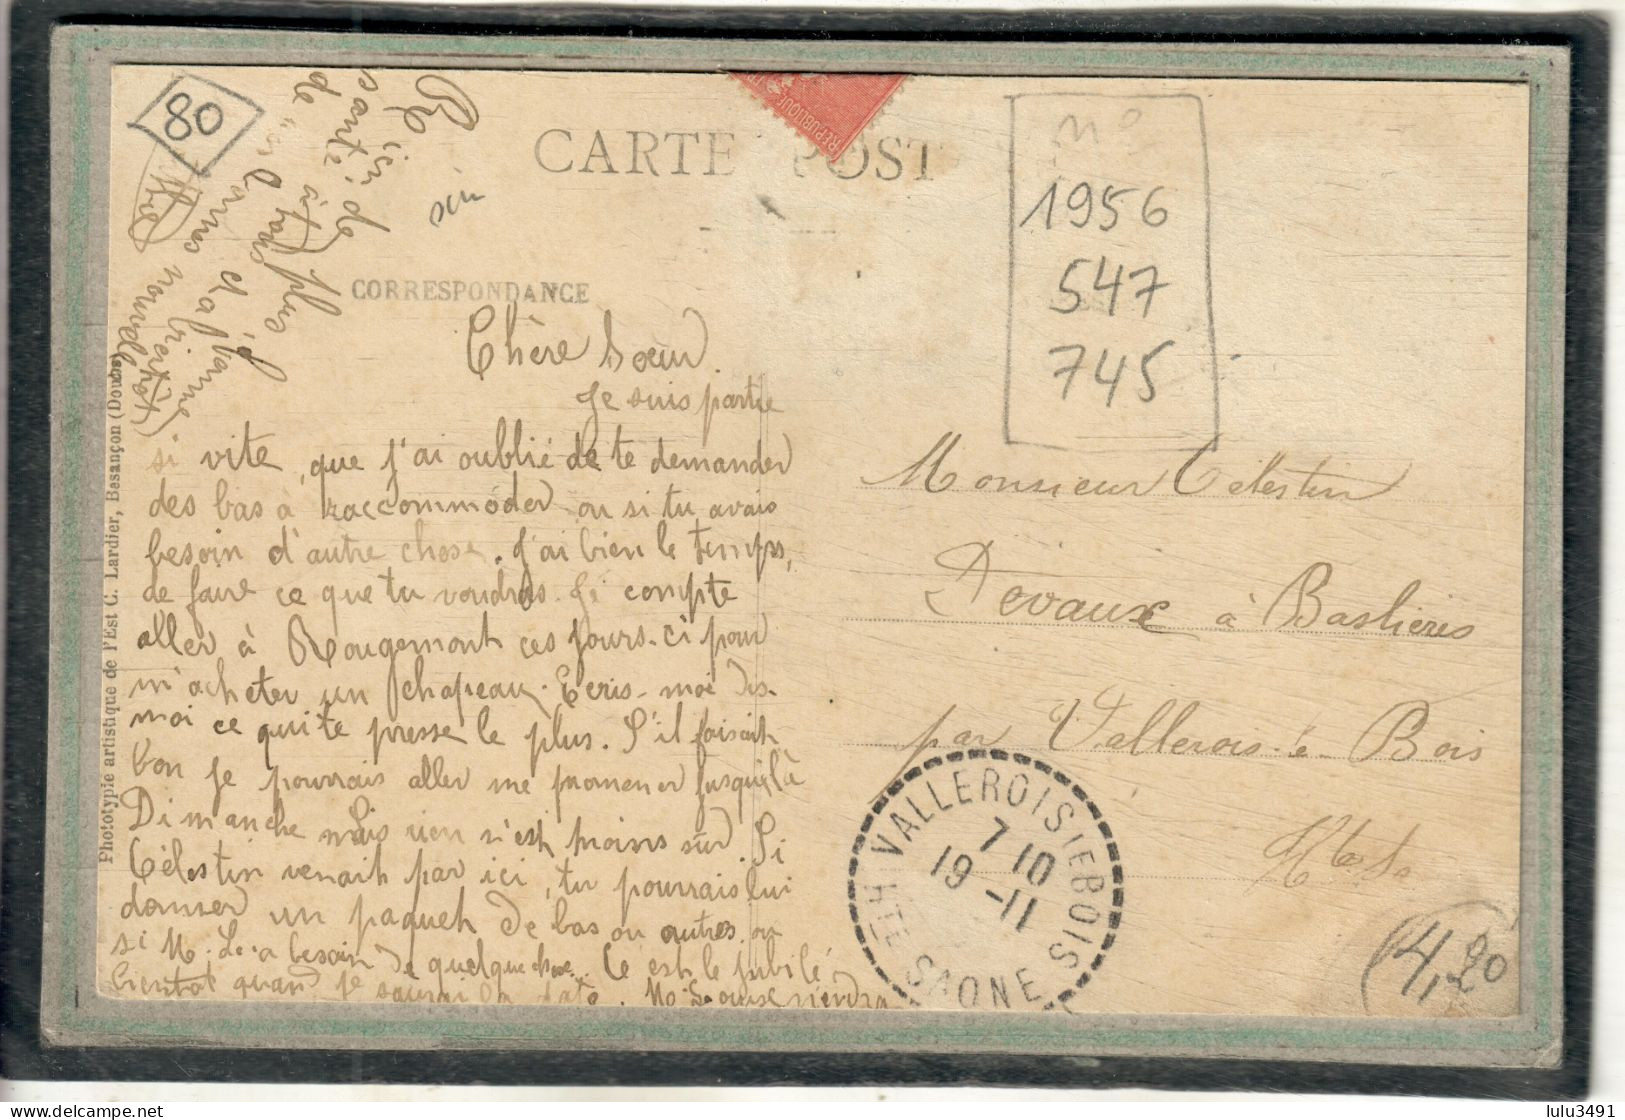 80
CARTE POST
RÉPUBLIQUE
n°
1956
547
745
CORRESPONDANCE
Chère Sœur
Je suis partie
si vite, que j'ai oublié de te demander
des bas à raccommoder ou si tu avais
besoin d'autre chose. J'ai bien le temps,
de faire ce que tu voudras. Je compte
aller à Rougemont ces jours-ci pour
m'acheter un chapeau. Ecris-moi dis-
moi ce qui te presse le plus. S'il faisait
bon je pourrais aller me promener jusqu'là
Dimanche mais rien n'est moins sûr. Si
Célestin venait par ici, tu pourrais lui
donner un paquet de bas ou autres ou
si M. a besoin de quelque chose. Ce est le jubilé
bientôt quand je saurai la date.
santé
de
plus
et
bientôt
nouvelle
Monsieur Célestin
Devaux à Baslières
par Vallerois-le-Bois
Hte Sne
VALLEROISLEBOIS
7 10
19 -11
HTE SAONE
4,20
Phototypie artistique de l'Est C. Lardier, Besançon (Doubs)
delcampe.net
lulu3491